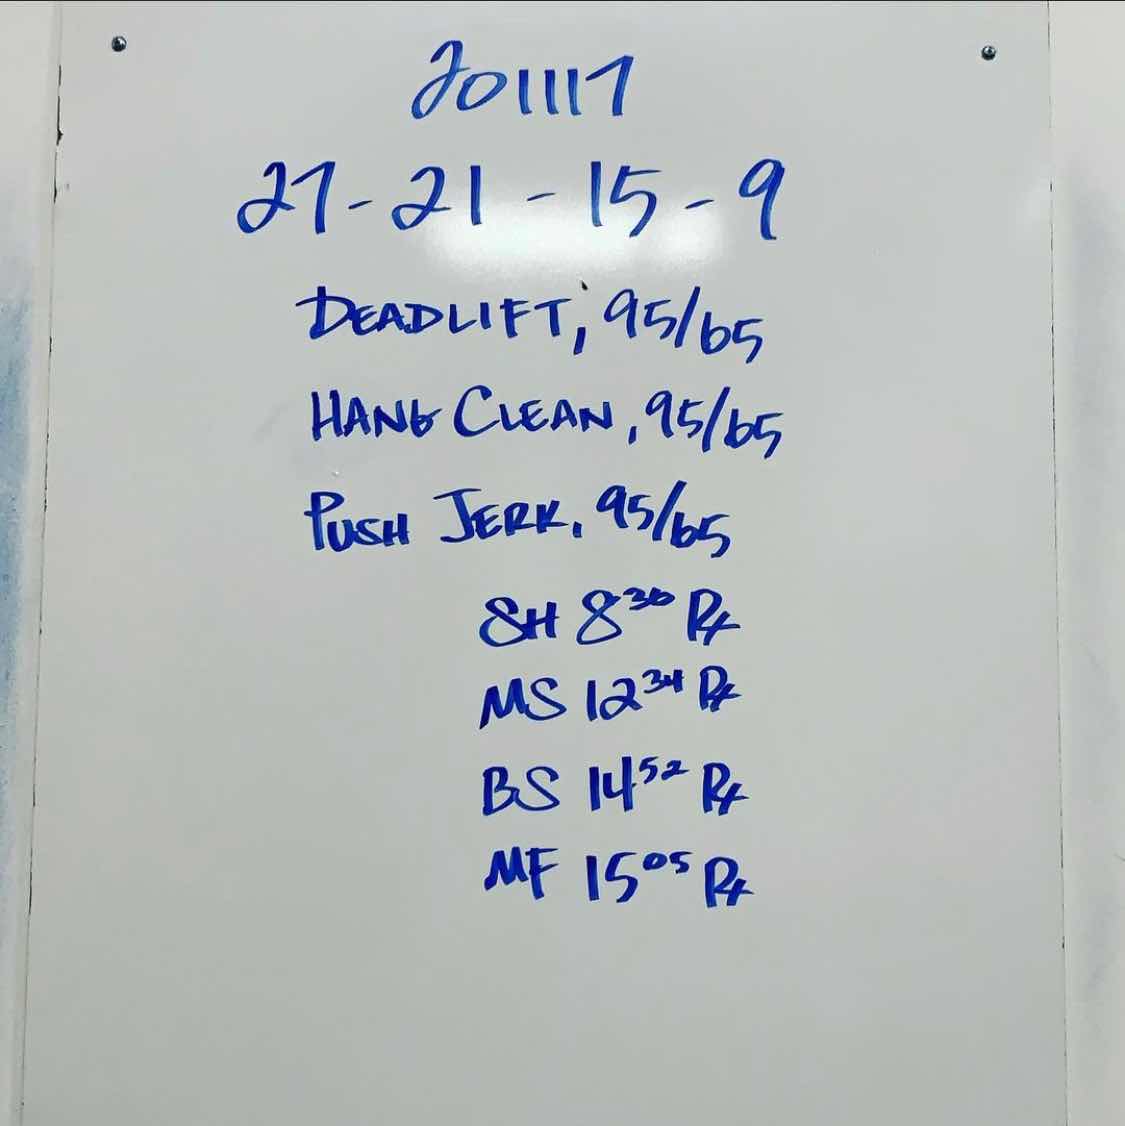 201117
27-21-15-9
DEADLIFT, 95/65
HANG CLEAN, 95/65
PUSH JERK, 95/65
SH 8 36 Rx
MS 12 34 Rx
BS 14 52 Rx
MF 15 05 Rx